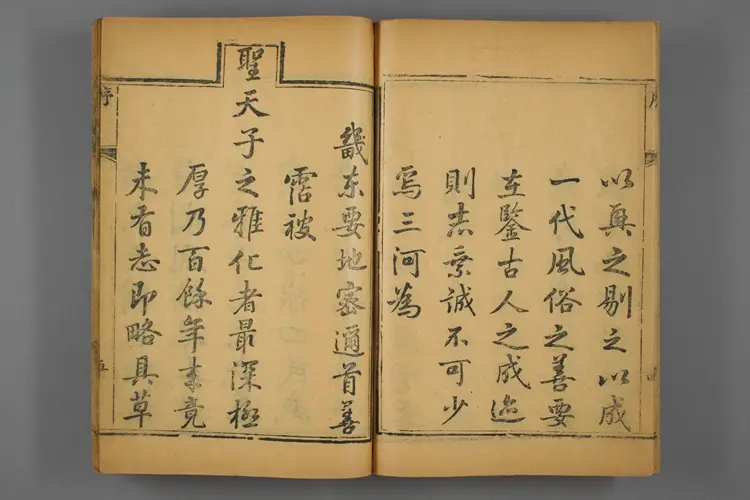 以興之剔之以成
一代風俗之善要
在鑒古人之成迹
則志乘誠不可少
焉三河為
畿東要地密邇首善
霑被
聖天子之雅化者最深極
厚乃百餘年來竟
未有志即略具草
序
五